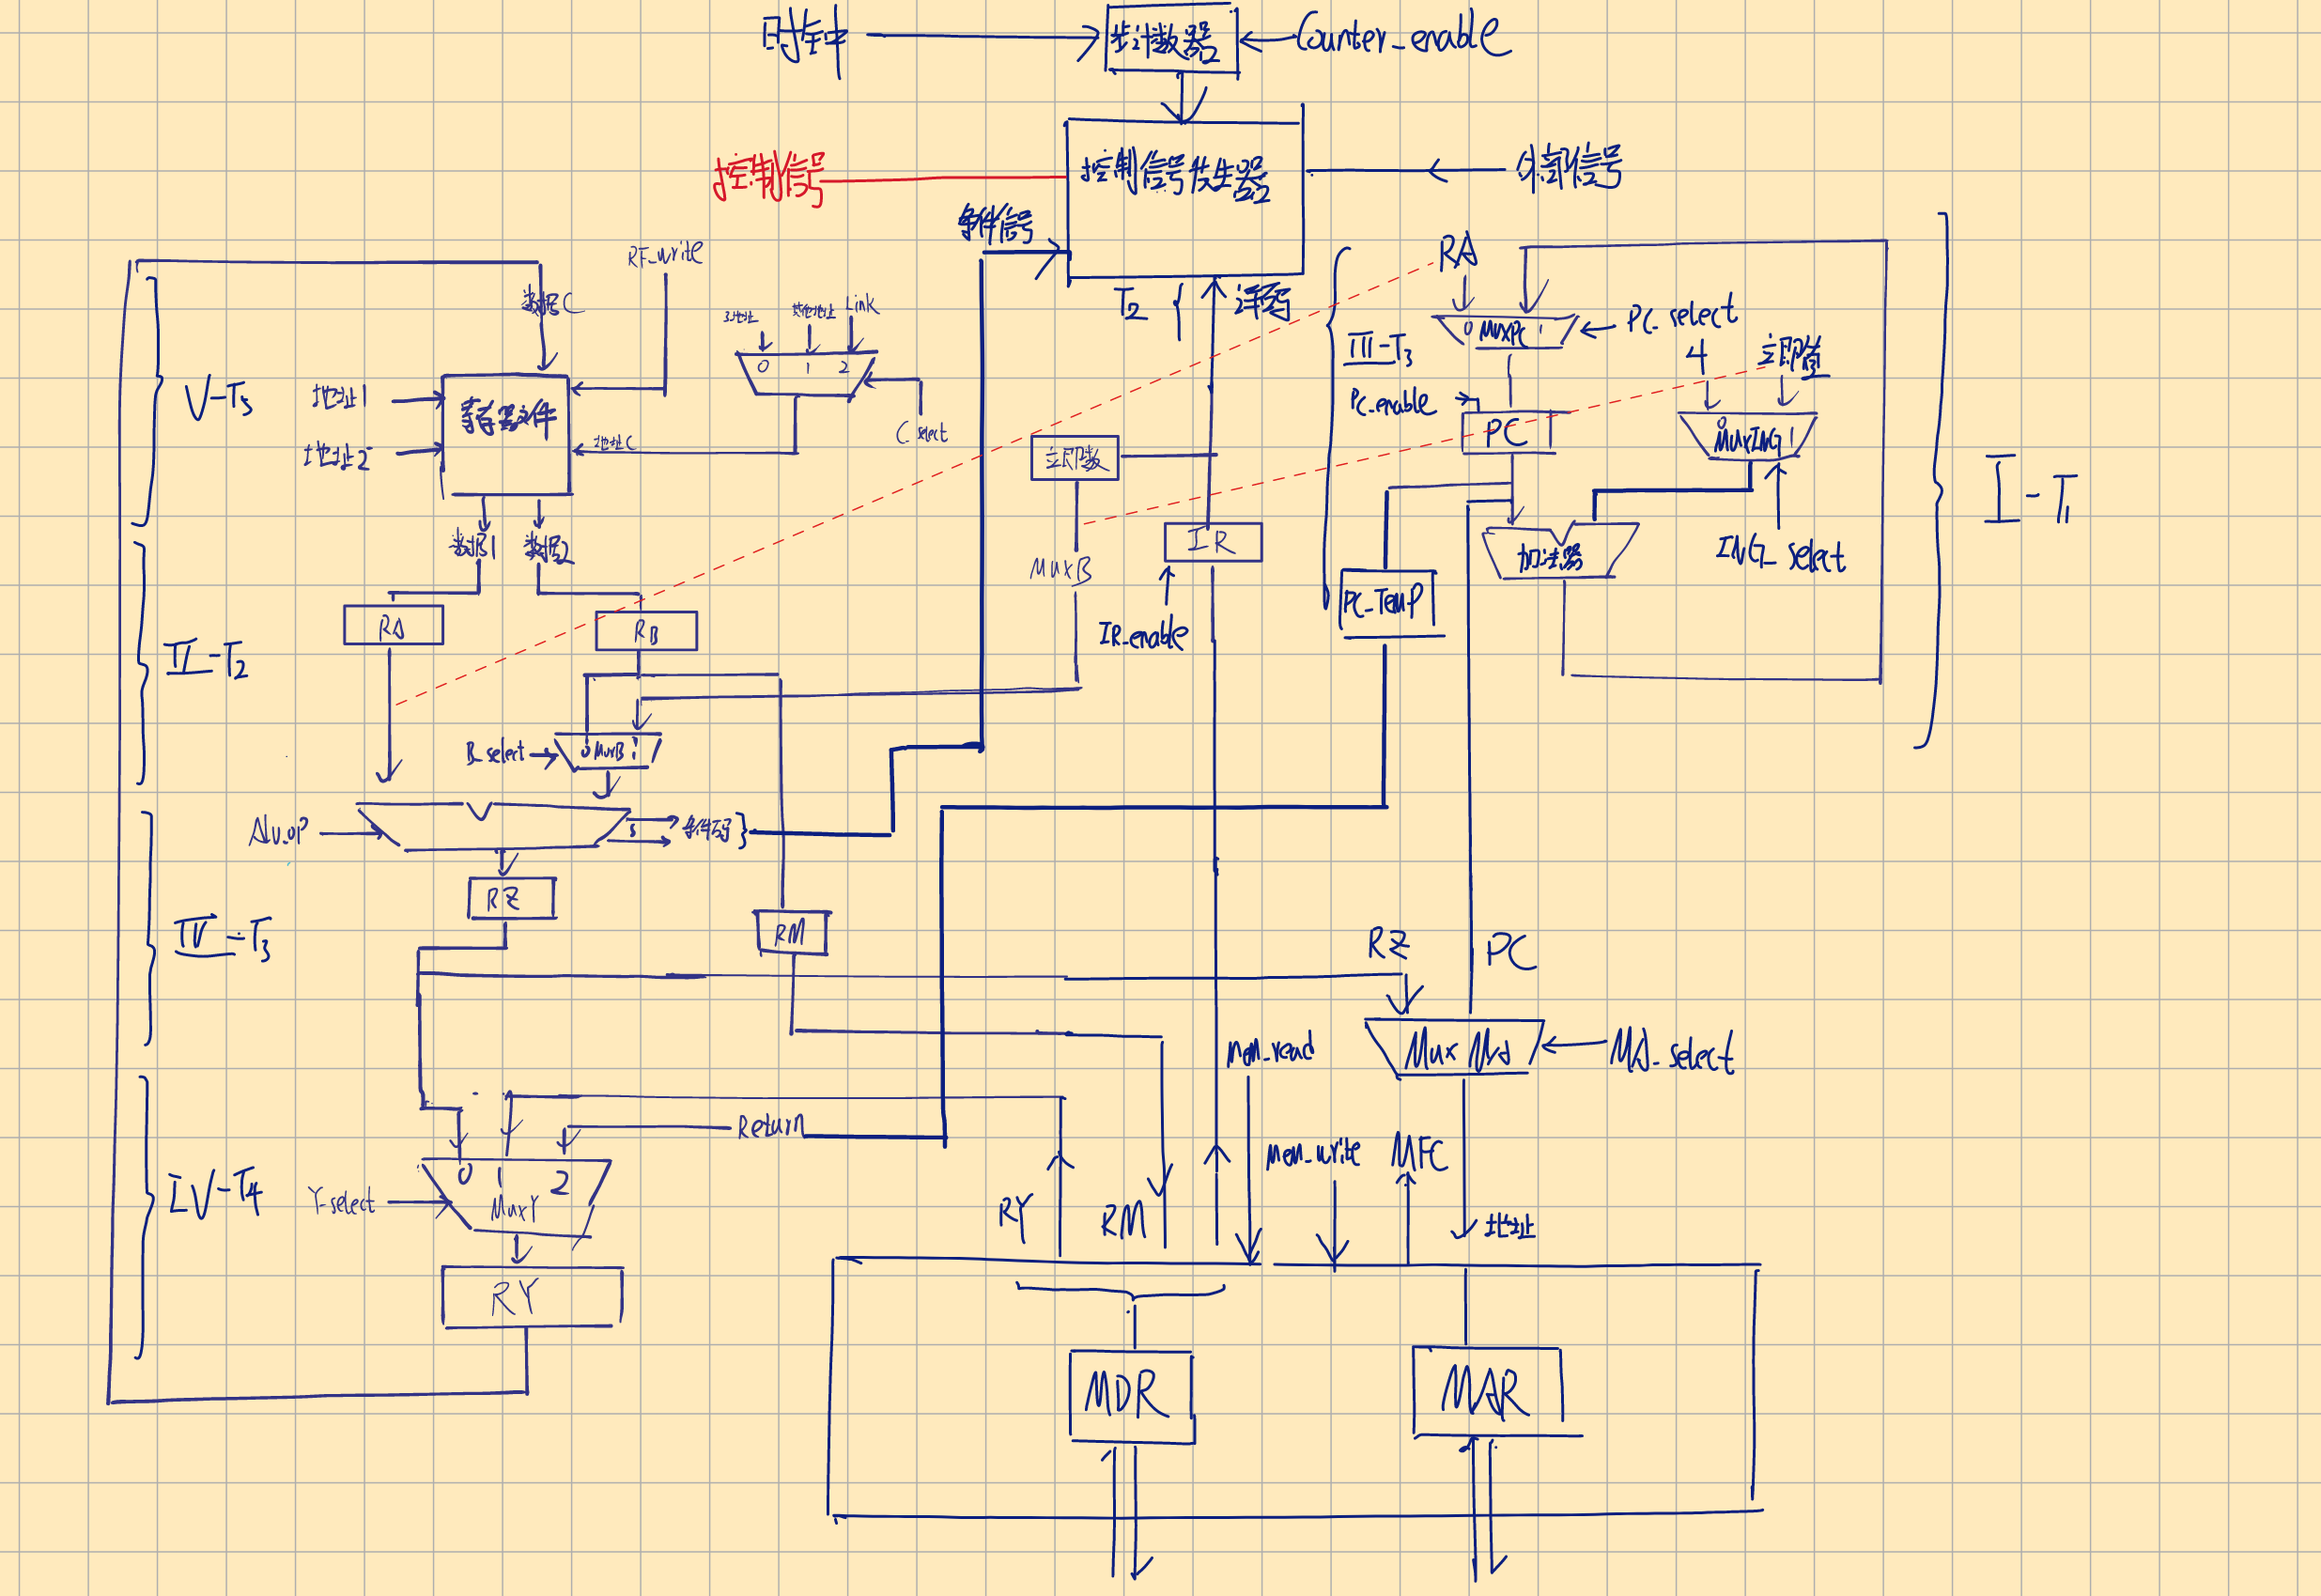 时钟
步计数器
Counter_enable
控制信号
控制信号发生器
外部信号
条件信号
RF_write
数据C
Link
0 1 2
T2
译码
RA
0 MuxPC 1
PC_select
III-T3
4
立即数
地址1
寄存器文件
地址C
C_select
地址2
V-T5
立即数
PC_enable
PC
0 MuxING 1
I-T1
数据1
数据2
MuxB
IR
加法器
ING_select
RA
RB
IR_enable
PC_TemP
II-T2
B_select
0 MuxB 1
ALU_OP
条件码
RZ
RM
RZ
PC
Mux MA
MA_select
mem_read
Return
mem_write
MFC
0 1 2
MuxY
Y-select
IV-T4
RY
RM
地址
RY
MDR
MAR